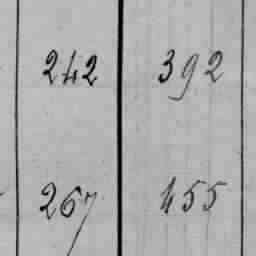 242 392
267 455